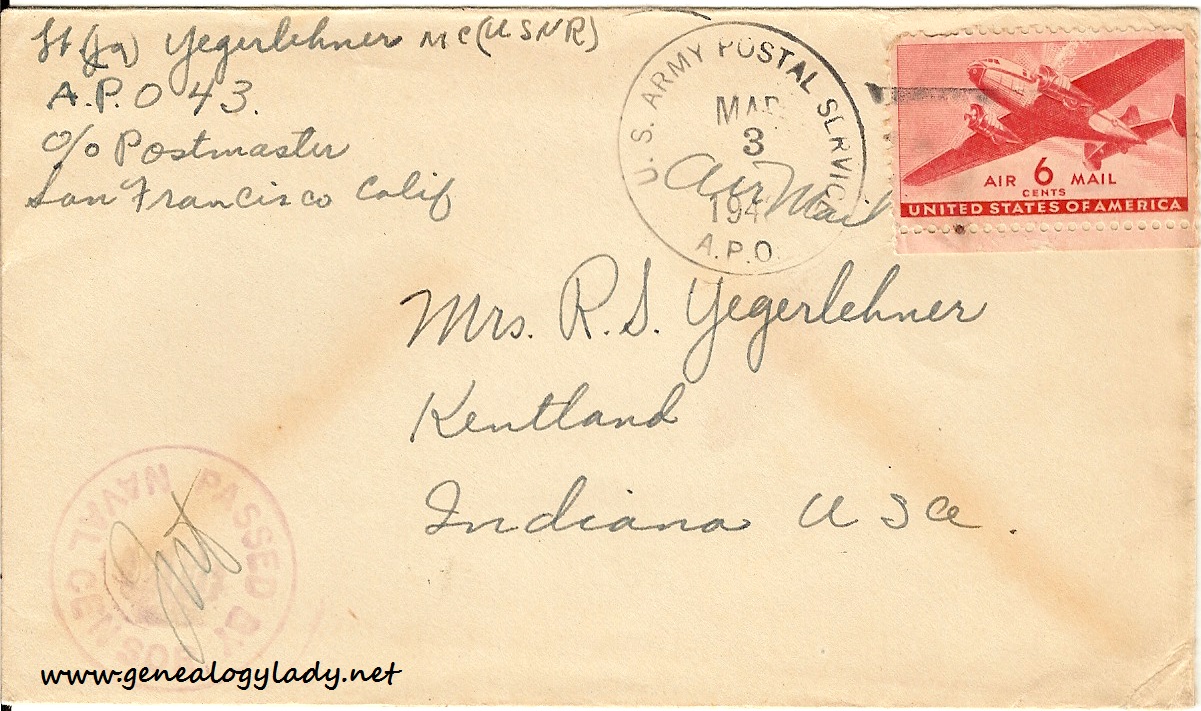 Lt (jg) Yegerlehner MC (USNR)
A.P.O 43.
c/o Postmaster
San Francisco Calif
U.S. ARMY POSTAL SERVICE
MAR
3
194
A.P.O.
Air Mail
AIR 6 MAIL
CENTS
UNITED STATES OF AMERICA
Mrs. R.S. Yegerlehner
Kentland
Indiana USA.
PASSED BY NAVAL CENSOR
www.genealogylady.net